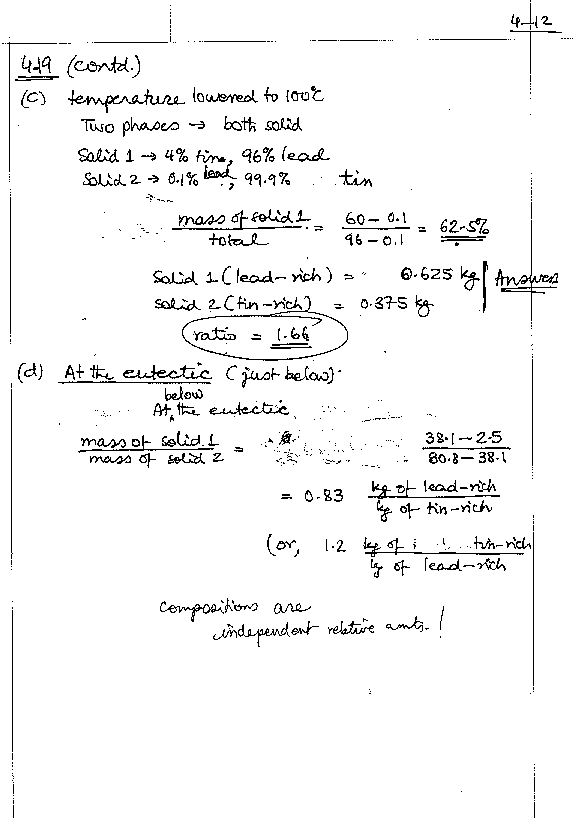 4-12
4-19 (contd.)
(c) temperature lowered to 100°C
Two phases → both solid
Solid 1 → 4% tin, 96% lead
Solid 2 → 0.1% lead, 99.9% tin
mass of solid 1 / total = 60 - 0.1 / 96 - 0.1 = 62.5%
Solid 1 (lead-rich) = 0.625 kg
Answer
solid 2 (tin-rich) = 0.375 kg
ratio = 1.66
(d) At the eutectic (just below).
below
At ^ the eutectic,
mass of solid 1 / mass of solid 2 = 38.1 - 2.5 / 80.8 - 38.1
= 0.83 kg of lead-rich / kg of tin-rich
(or, 1.2 kg of tin-rich / kg of lead-rich
compositions are
independent relative amts. !